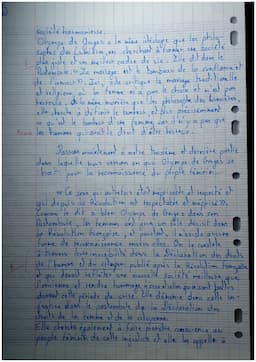 société harmonieuse.
Olympe de Gouges a la même idéologie que les philo-
sophes des Lumières, en cherchant à former une société
plus juste et un meilleur cadre de vie. Elle dit dans le
Postambule : "Le mariage est le tombeau de la confiance et
de l'amour". Ici, elle critique le mariage traditionnelle
et religieux où la femme n'a pas le droit et n'est pas
heureuse. de la même manière que les philosophes des Lumières,
elle cherche à définir le bonheur et plus précisément
ce qu'est le bonheur d'un homme, car il n'y a pas que
les hommes qui ont le droit d'être heureux.
Passons maintenant à notre troisième et dernière partie
dans laquelle nous verrons en quoi Olympe de Gouges se
bat pour la reconnaissance du peuple féminin.
"Ce sexe qui autrefois était méprisable et respecté et
qui depuis la Révolution est respectable et méprisé".
Comme le dit si bien Olympe de Gouges dans son
Postambule, les femmes ont
la Révolution française, et pourtant,
forme de reconnaissance envers elles. On le constate
à travers leur invisibilité dans la Déclaration des droits
de l'homme et du citoyen publié après la Révolution française
et qui devait initier une nouvelle société meilleure que
l'ancienne et rendre hommage
durant cette période de crise. Elle dénonce donc cette in-
dans le postambule de la déclaration des
droits de la femme et de la citoyenne.
Elle cherche également à faire prendre conscience au
peuple féminin de cette injustice et elle les appelle à